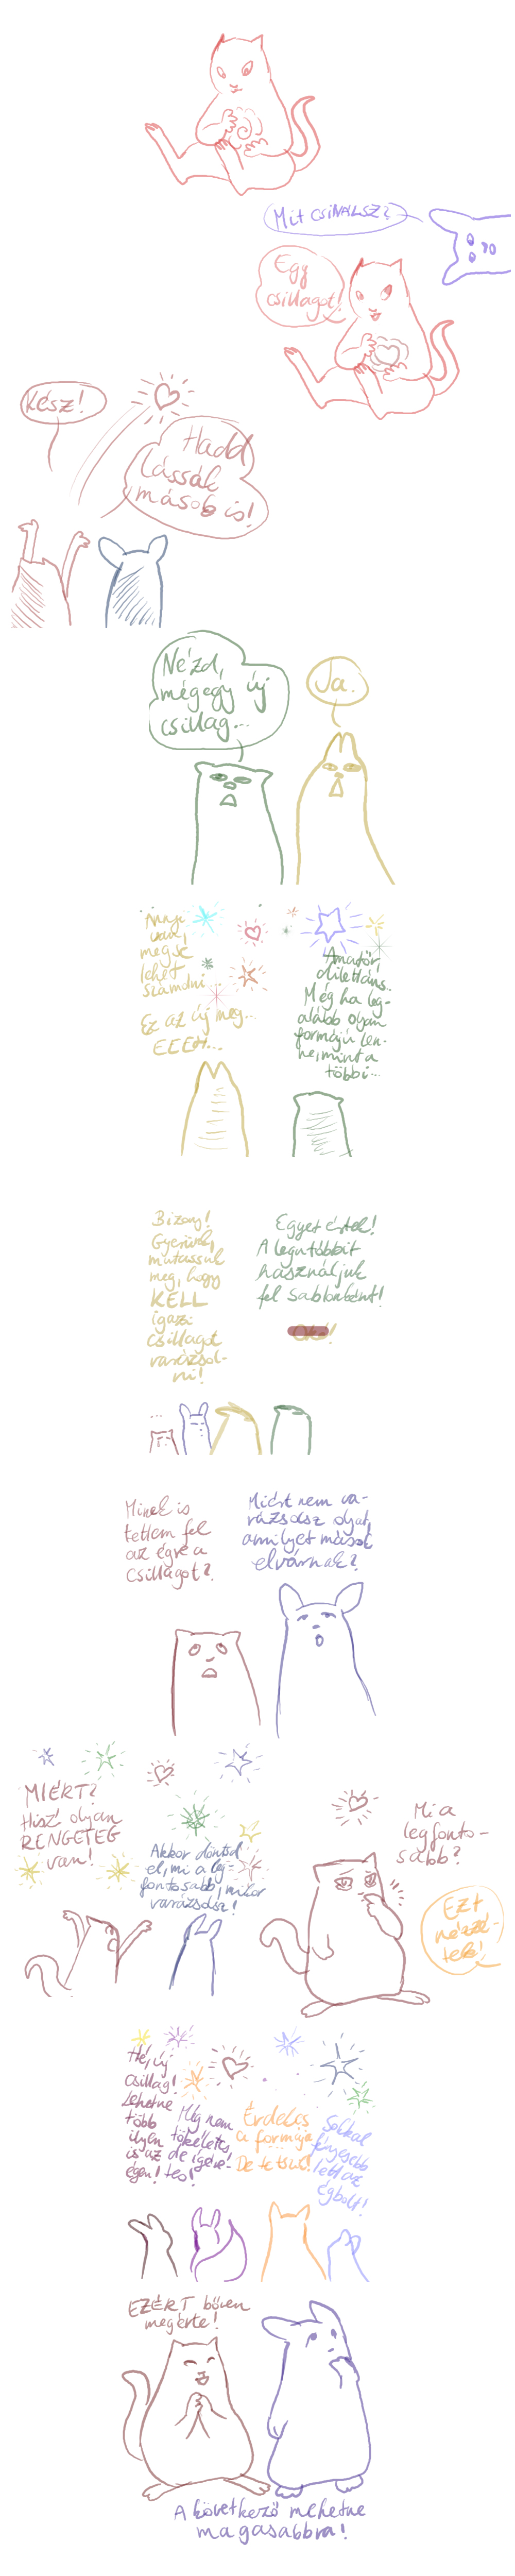 Mit csinálsz?
Egy
csillagot!
Kész!
Hadd
lássák
mások is!
Nézd,
mégegy új
csillag...
Ja.
Annyi
van,
megse
lehet
számolni...
Ez az új meg...
EEEH...
Amatőr,
dilettáns..
Még ha leg-
alább olyan
formájú len-
ne, mint a
többi...
Bizony!
Gyerünk,
mutassuk
meg, hogy
KELL
igazi
csillagot
varázsol-
ni!
Egyet értek!
A legutóbbit
használjuk
fel sablonként!
...
Minek is
tettem fel
az égre a
csillagot?
Miért nem va-
rázsolsz olyat,
amilyet mások
elvárnak?
MIÉRT?
Hisz olyan
RENGETEG
van!
Akkor döntsd
el, mi a leg-
fontosabb, mikor
varázsolsz!
Mi a
legfonto-
sabb?
Ezt
nézzé-
tek!
Hé, új
csillag!
Lehetne
több
ilyen
is az
égen!
Még nem
tökéletes,
de ígére-
tes!
Érdekes
a formája.
De tetszik!
Sokkal
fényesebb
lett az
égbolt!
EZÉRT bőven
megérte!
A következő mehetne
magasabbra!